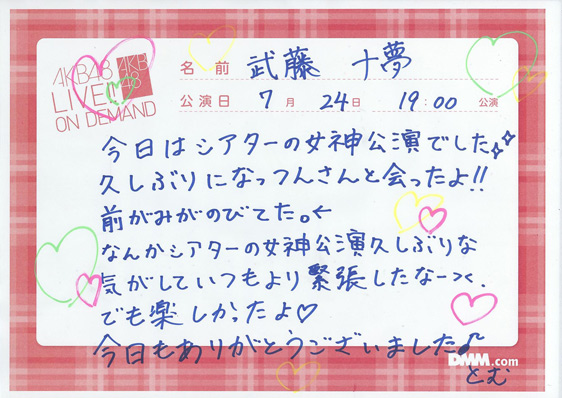 AKB48
LIVE!!
ON DEMAND
AKB
48
名前 武藤 十夢
公演日 7月 24日 19:00 公演
今日はシアターの女神公演でした
久しぶりになっつんさんと会ったよ!!
前がみがのびてた。←
なんかシアターの女神公演久しぶりな
気がしていつもより緊張したなー><.
でも楽しかったよ♡
今日もありがとうございました♪
DMM.com
とむ